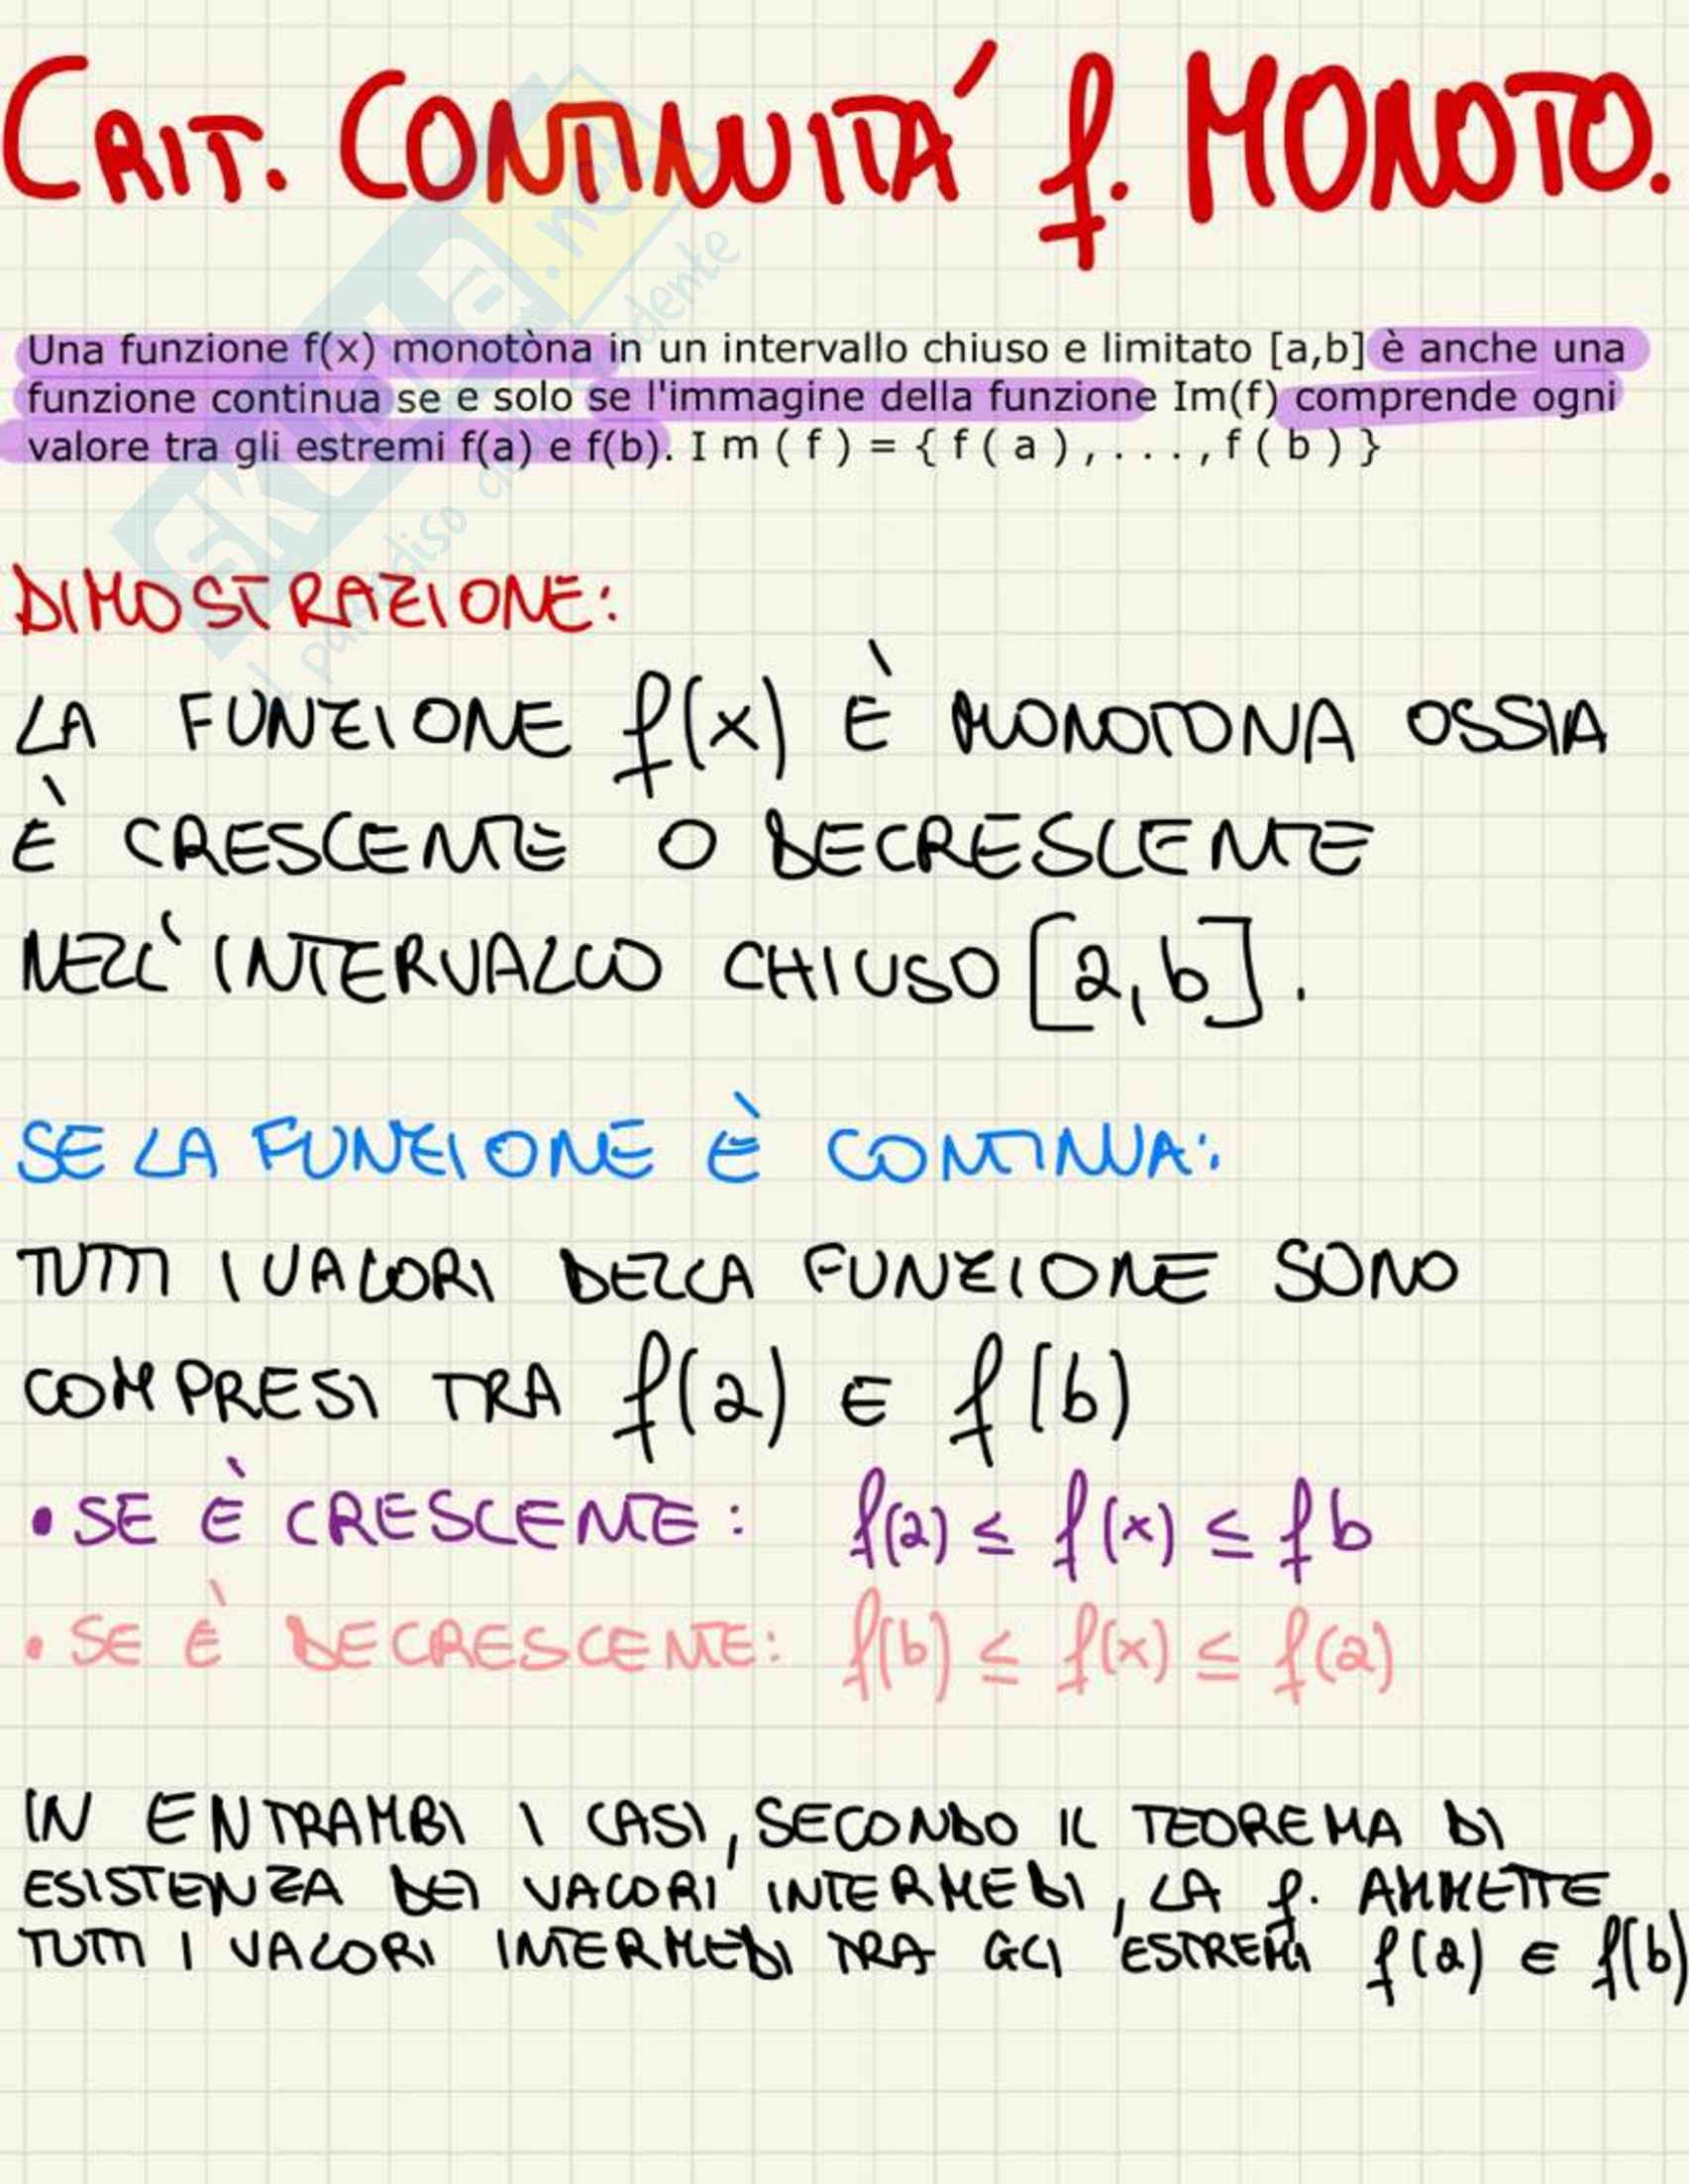 CRIT. CONTINUITÀ f. MONOTO.
Una funzione f(x) monotòna in un intervallo chiuso e limitato [a,b] è anche una
funzione continua se e solo se l'immagine della funzione Im(f) comprende ogni
valore tra gli estremi f(a) e f(b). I m ( f ) = { f ( a ) , . . . , f ( b ) }
DIMOSTRAZIONE:
LA FUNZIONE f(x) È MONOTONA OSSIA
È CRESCENTE O DECRESCENTE
NELL'INTERVALLO CHIUSO [a,b].
SE LA FUNZIONE È CONTINUA:
TUTTI I VALORI DELLA FUNZIONE SONO
COMPRESI TRA f(a) E f(b)
• SE È CRESCENTE: f(a) ≤ f(x) ≤ fb
• SE È DECRESCENTE: f(b) ≤ f(x) ≤ f(a)
IN ENTRAMBI I CASI, SECONDO IL TEOREMA DI
ESISTENZA DEI VALORI INTERMEDI, LA f. AMMETTE
TUTTI I VALORI INTERMEDI TRA GLI ESTREMI f(a) E f(b)